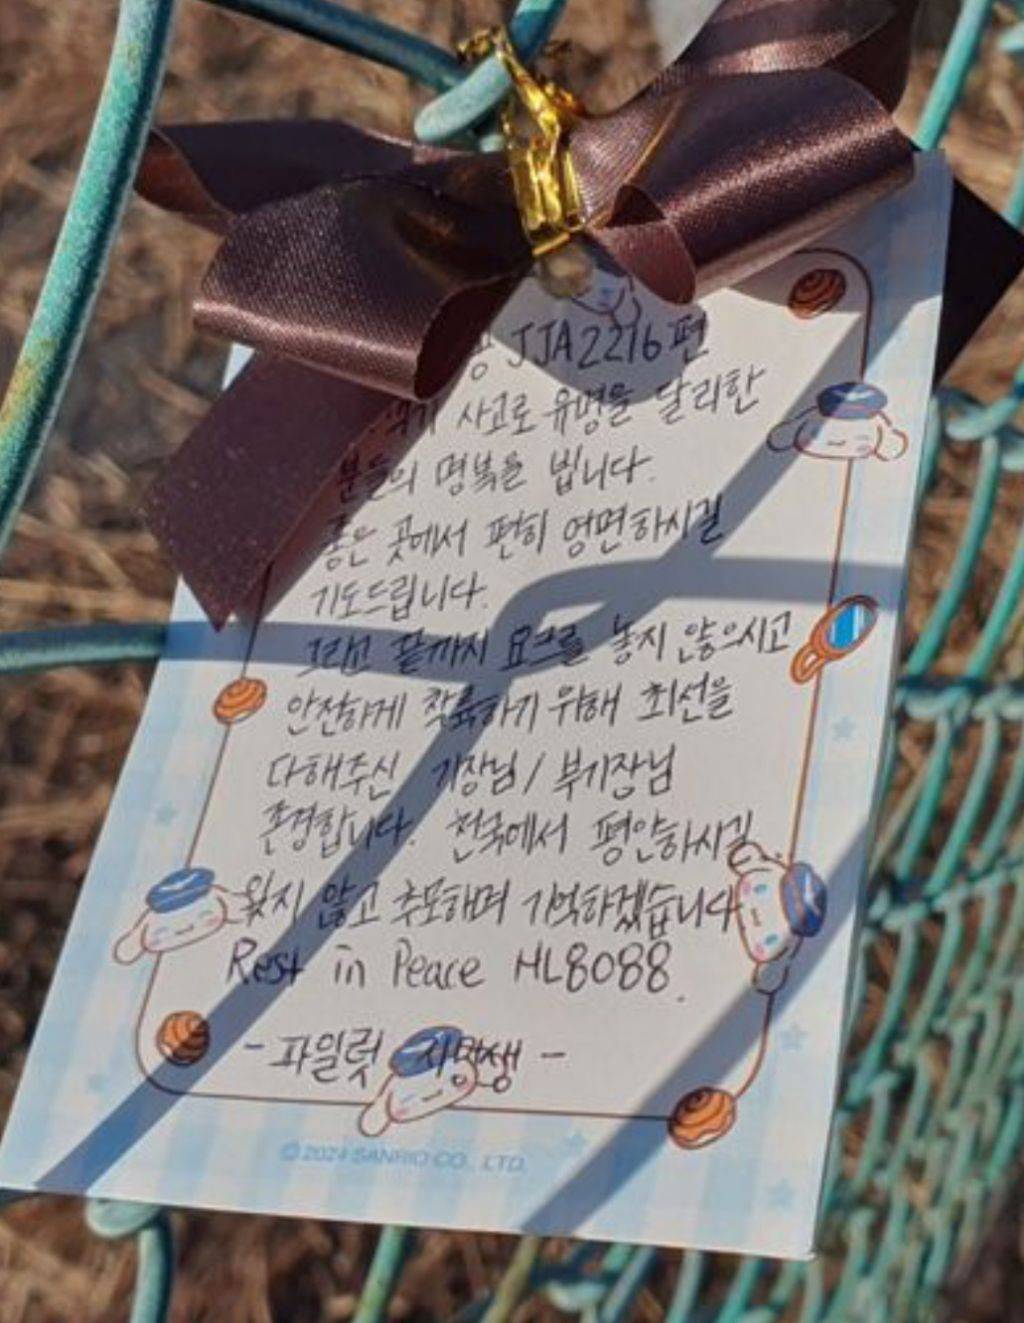 JJA2216편
사고로 유명을 달리한
분들의 명복을 빕니다.
좋은 곳에서 편히 영면하시길
기도드립니다.
그리고 끝까지 요크를 놓지 않으시고
안전하게 착륙하기 위해 최선을
다해주신 기장님 / 부기장님
존경합니다. 천국에서 평안하시길
잊지 않고 추모하며 기억하겠습니다
Rest in Peace HL8088.
- 파일럿 지망생 -
©2024 SANRIO CO., LTD.